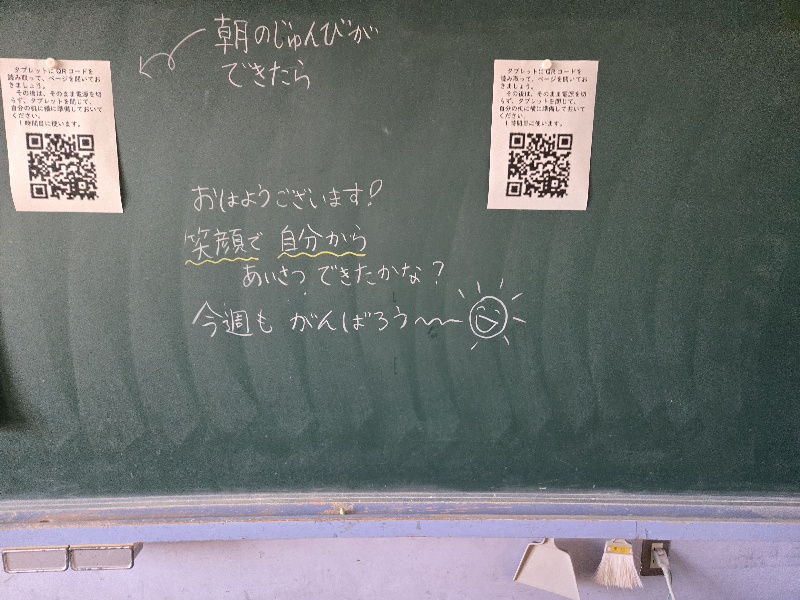 朝のじゅんびが
できたら
タブレットにQRコードを
読み取って、ページを開いてお
きましょう。
その後は、そのまま電源を切
らず、タブレットを閉じて、
自分の机に横に準備しておいて
ください。
1時間目に使います。
タブレットにQRコードを
読み取って、ページを開いてお
きましょう。
その後は、そのまま電源を切
らず、タブレットを閉じて、
自分の机に横に準備しておいて
ください。
1時間目に使います。
おはようございます!
笑顔で 自分から
あいさつ できたかな?
今週も がんばろう〜〜